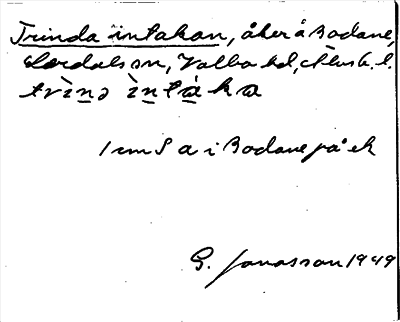 Trinda intakan, åker å Bodane,
Lerdals sn, Valbo hd, Älvsb. l.
trìnə ìntàka
1 cm S a i Bodane på ek
G. Jonasson 1949